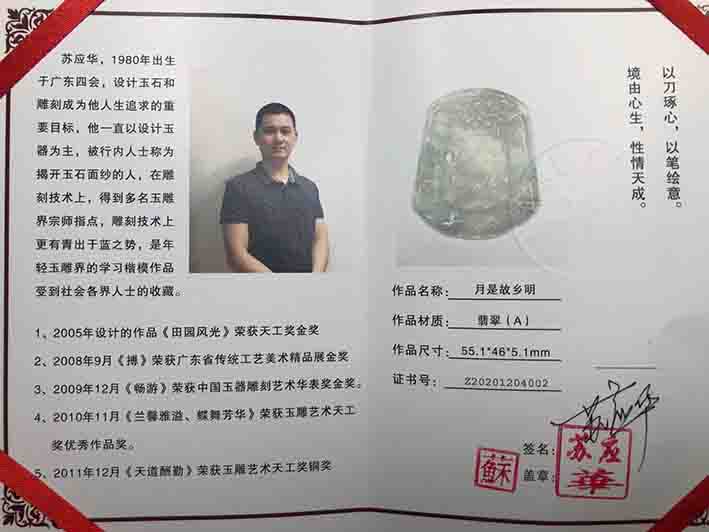 苏应华，1980年出生
于广东四会，设计玉石和
雕刻成为他人生追求的重
要目标，他一直以设计玉
器为主，被行内人士称为
揭开玉石面纱的人，在雕
刻技术上，得到多名玉雕
界宗师指点，雕刻技术上
更有青出于蓝之势，是年
轻玉雕界的学习楷模作品
受到社会各界人士的收藏。
1、2005年设计的作品《田园风光》荣获天工奖金奖
2、2008年9月《搏》荣获广东省传统工艺美术精品展金奖
3、2009年12月《畅游》荣获中国玉器雕刻艺术华表奖金奖。
4、2010年11月《兰馨雅溢、蝶舞芳华》荣获玉雕艺术天工
奖优秀作品奖。
5、2011年12月《天道酬勤》荣获玉雕艺术天工奖铜奖
以刀琢心，以笔绘意。
境由心生，性情天成。
作品名称：月是故乡明
作品材质：翡翠（A）
作品尺寸：55.1*46*5.1mm
证书号：Z20201204002
签名：苏应华
盖章：
蘇
苏应
華